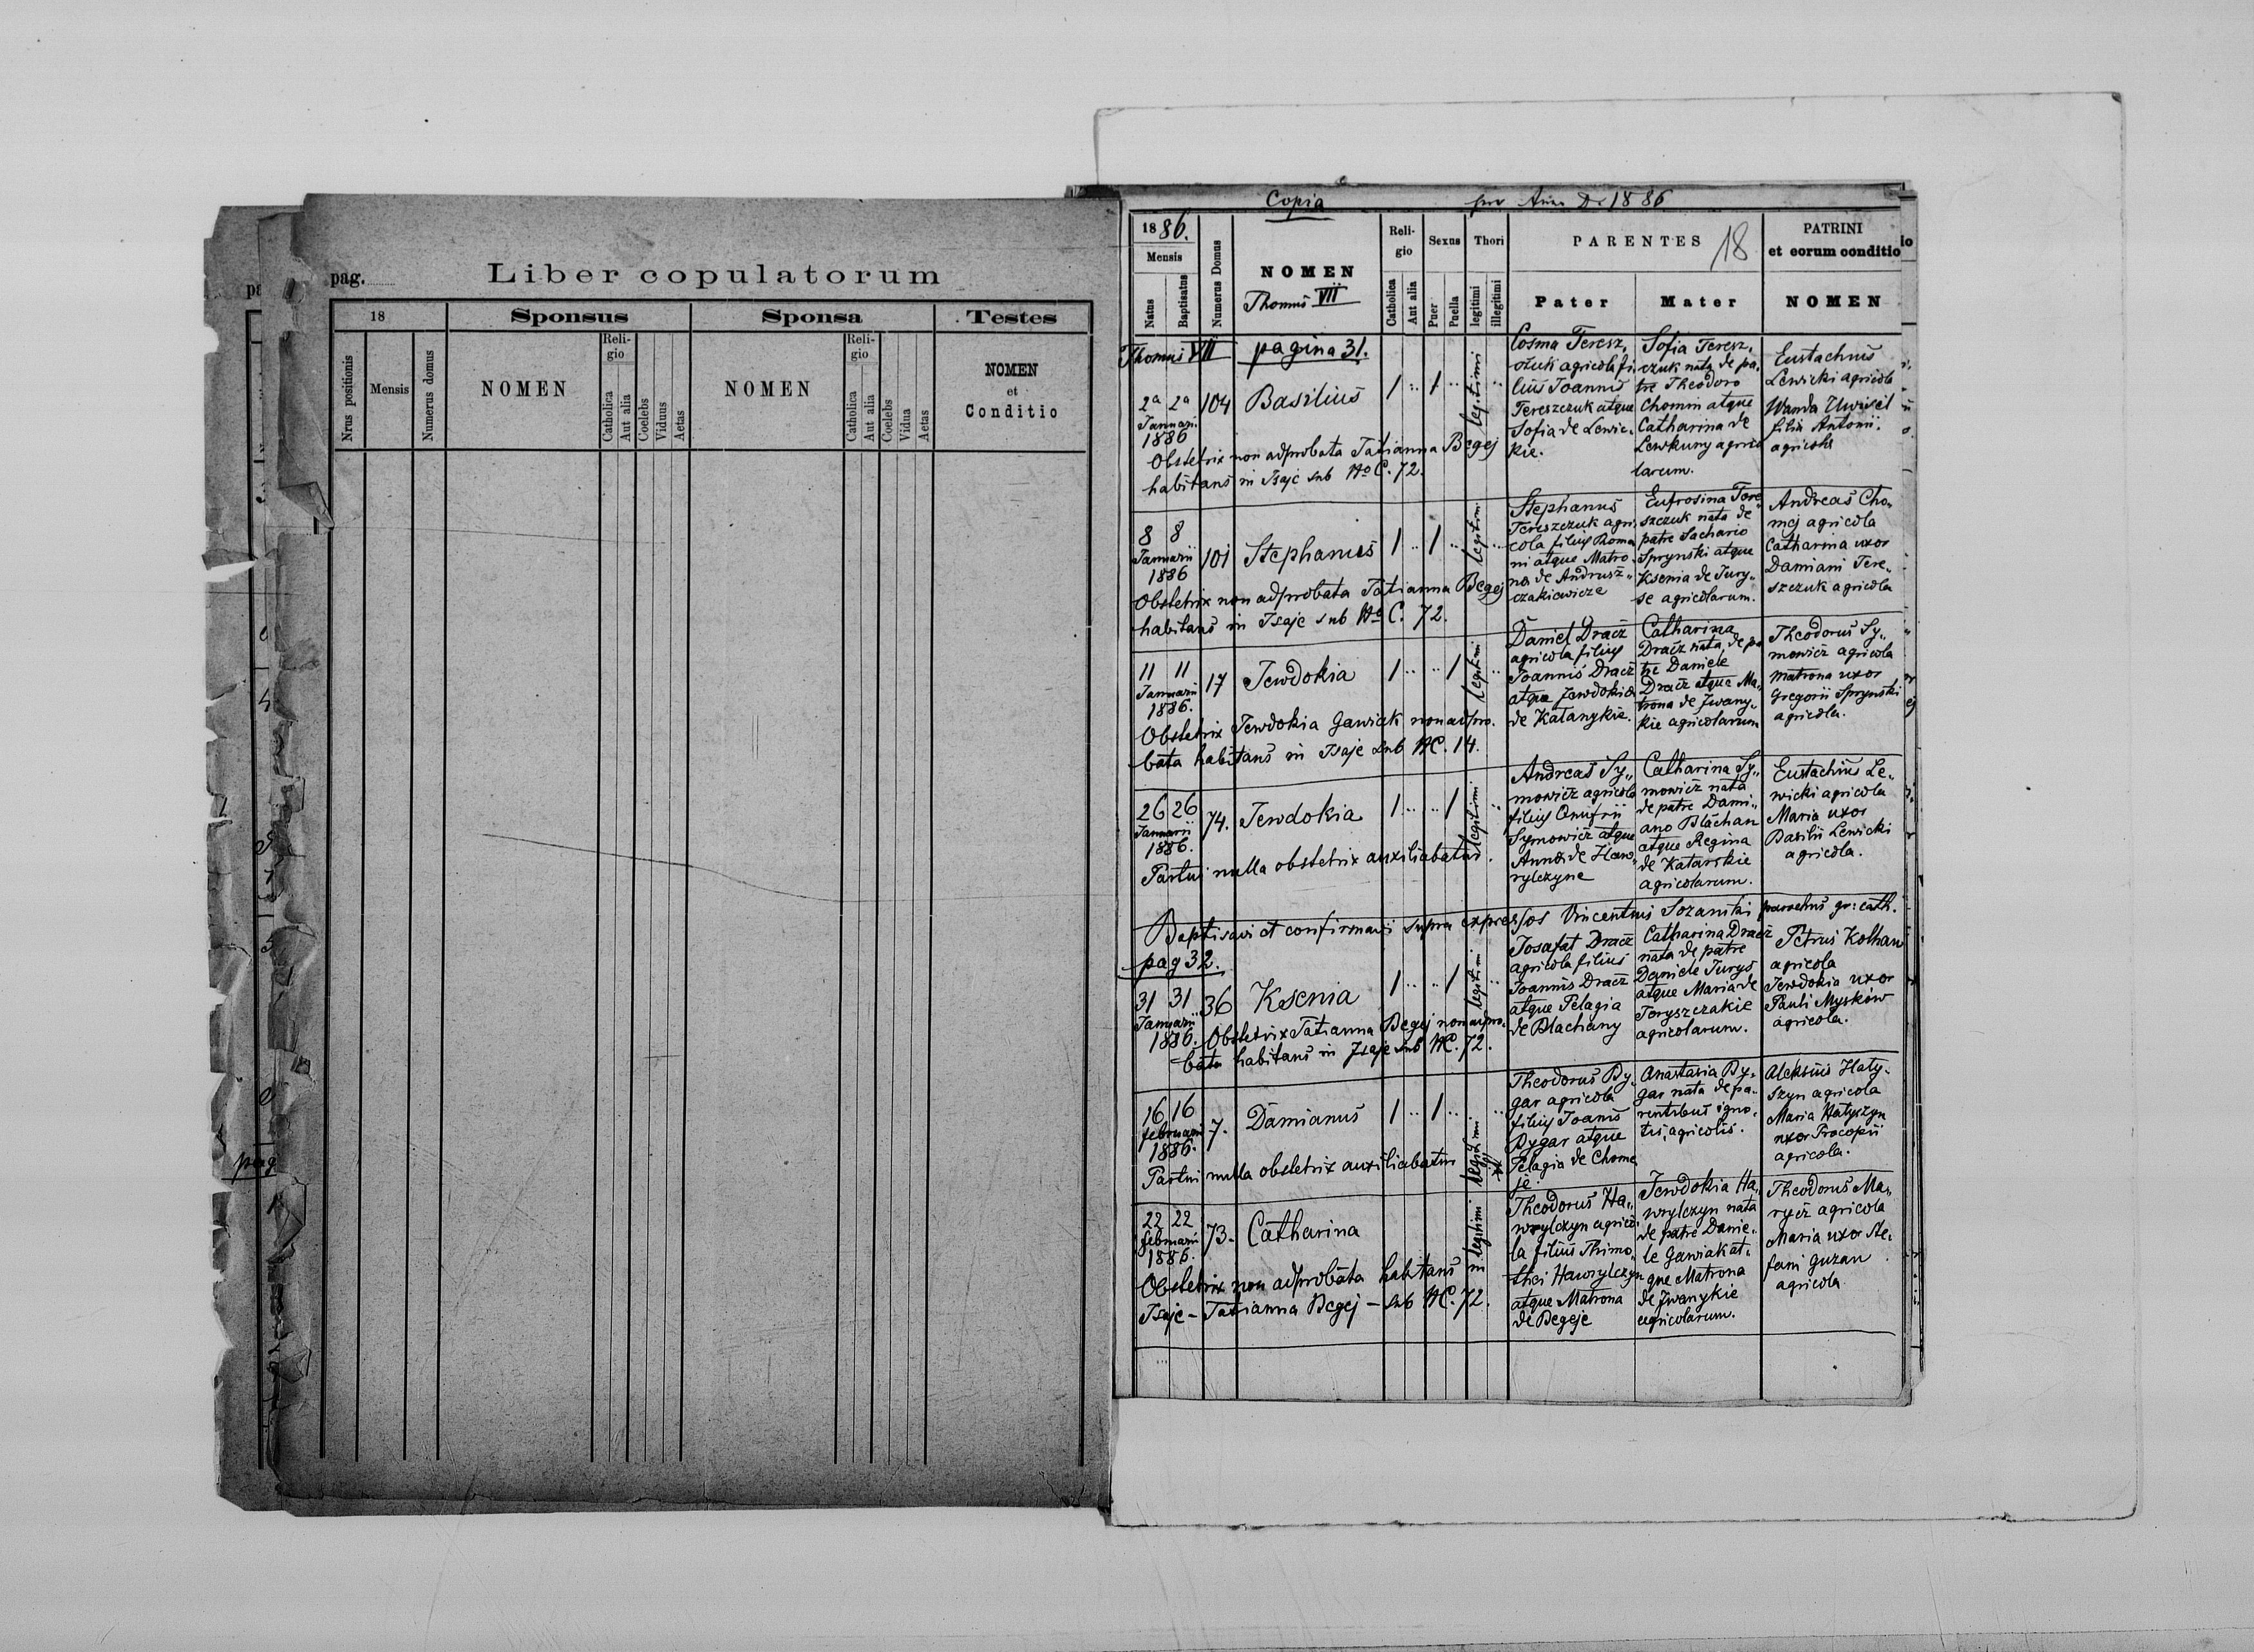 pag.
Liber copulatorum
18
Sponsus
Sponsa
Testes
Nrus positionis
Mensis
Numerus domus
NOMEN
Reli-
gio
Catholica
Aut alia
Coelebs
Viduus
Aetas
NOMEN
Reli-
gio
Catholica
Aut alia
Coelebs
Vidua
Aetas
NOMEN
et
Conditio
pag
Copia
1886
1886.
Mensis
Natus
Baptisatus
Numerus Domus
NOMEN
Thomus VII
Reli-
gio
Catholica
Aut alia
Sexus
Puer
Puella
Thori
legitimi
illegitimi
PARENTES
18
Pater
Mater
PATRINI
et eorum conditio
NOMEN
Thomus VII pagina 31.
2a 2a
Januarii
1886
104
Basilius
1 .. 1 ..
legitimi
Cosma Teresz,
czuk agricola fi,
lius Joannis
Tereszczuk atque
Sofia de Lewic,
kie.
Sofia Teresz,
czuk nata de pa,
tre Theodoro
Chomin atque
Catharina de
Lewkuny agrico
larum.
Eustachius
Lewicki agricola
Wanda
filia Antonii
agricola
Obstetrix non adprobata Tatianna Begej
habitans in Isaje sub No C. 72.
8 8
Januarii
1886
101
Stephanus
1 .. 1 ..
legitimi
Stephanus
Tereszczuk agri,
cola filius Roma
ni atque Matro,
na de Andrusz,,
czakiewicze
Eufrosina Tere
szczuk nata de
patre Sachario
Sprynski atque
Ksenia de Jury,,
se agricolarum.
Andreas Cho,
mej agricola
Catharina uxor
Damiani Tere,,
szczuk agricola
Obstetrix non adprobata Tatianna Begej
habitans in Isaje sub No C. 72.
11 11
Januarii
1886.
17
Jewdokia
1 .. .. 1
legitimi
Daniel Dracz
agricola filius
Joannis Dracz
atque Jewdokia
de Katanykie.
Catharina
Dracz nata de pa
tre Daniele
Dracz atque Ma,
trona de Iwany,
kie agricolarum
Theodorus Sy,,
mowicz agricola
Matrona uxor
Gregorii Sprynski
agricola.
Obstetrix Jewdokia Gawiak non adpro.
bata habitans in Isaje sub NC. 14.
26 26
Januarii
1886.
74.
Jewdokia
1 .. .. 1
legitimi
Andreas Sy,,
mowicz agricola
filius Onufrii
Symowicz atque
Anna de Haw,,
rylczyne
Catharina Sy,,
mowicz nata
de patre Dami,,
ano Blachan
atque Regina
de Katarskie
agricolarum.
Eustachius Le,,
wicki agricola
Maria uxor
Basilii Lewicki
agricola.
Partui nulla obstetrix auxiliabatur.
Baptisavi et confirmavi supra expressos Vincentius Sozanski parochus gr: cath.
pag 32.
31 31
Januarii
1886.
36
Ksenia
1 .. .. 1
legitimi
Josafat Dracz
agricola filius
Joannis Dracz
atque Pelagia
de Blachany
Catharina Dracz
nata de patre
Daniele Jurys
atque Maria de
Toryszczakie
agricolarum.
Petrus Kolhan
agricola
Jewdokia uxor
Pauli Myskow
agricola.
Obstetrix Tatianna Begej non adpro.
bata habitans in Isaje sub NC. 72.
16 16
februarii
1886.
7.
Damianus
1 .. 1 ..
legitimi
Theodorus By,
gar agricola
filius Joanis
Bygar atque
Pelagia de Chome
je
Anastasia By,
gar nata de pa,
rentibus igno,
tis, agricolis.
Aleksius Haty,
szyn agricola
Maria Hatyszyn
uxor Procopii
agricola.
Partui nulla obstetrix auxiliabatur
22 22
februarii
1886.
73.
Catharina
legitimi
Theodorus Ha,,
wrylczyn agrico,
la filius Thimo,
thei Hawrylczyn
atque Matrona
de Begeje
Jewdokia Ha,
wrylczyn nata
de patre Danie,
le Gawiak at,
que Matrona
de Iwanykie
agricolarum.
Theodorus Ma,,
rycz agricola
Maria uxor Ste,
fani Guzan
agricola
Obstetrix non adprobata habitans in
Isaje - Tatianna Begej - sub NC. 72.